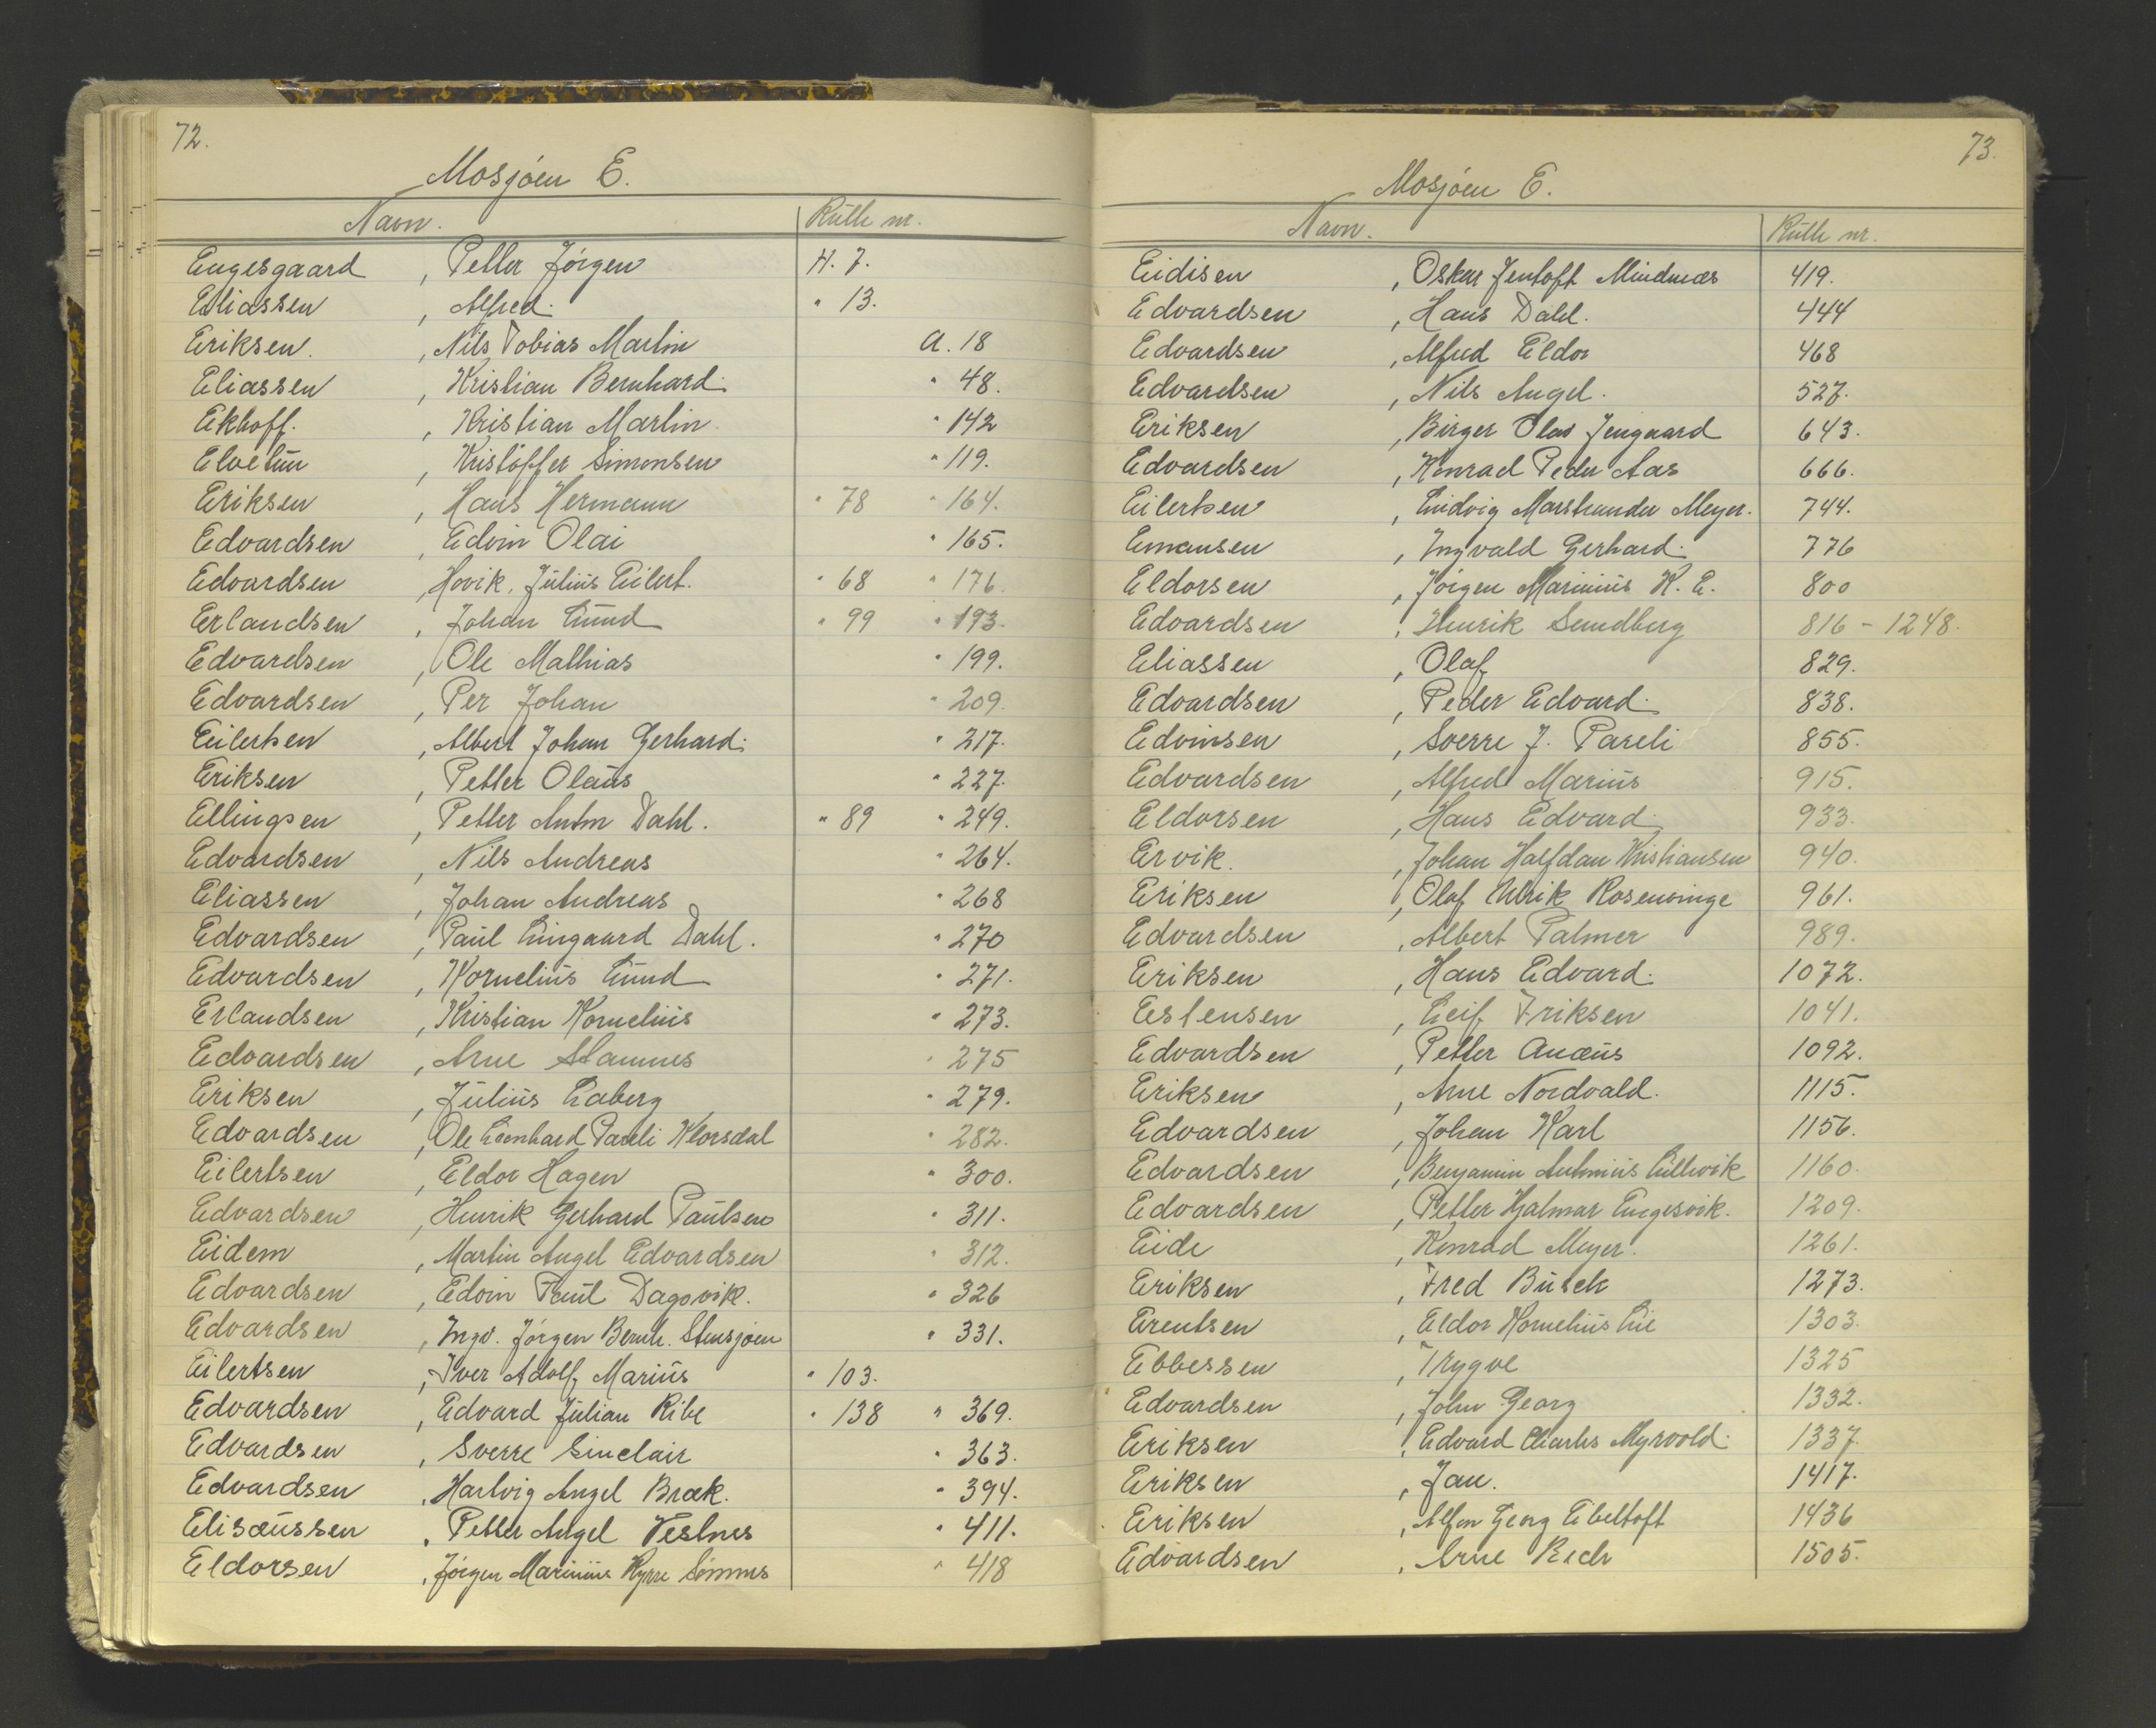 72.
Mosjøen E.
Navn. Rulle nr.
Engesgaard , Petter Jørgen H. 7.
Eliassen , Alfred. " 13.
Eriksen. , Nils Tobias Martin A. 18
Eliassen , Kristian Bernhard. " 48.
Ekhoff. , Kristian Martin " 142
Elvetun , Kristoffer Simonsen " 119.
Eriksen , Hans Hermann " 78 " 164.
Edvardsen , Edvin Olai " 165.
Edvardsen , Hovik. Julius Eilert. " 68 " 176.
Erlandsen , Johan Lund " 99 " 193.
Edvardsen , Ole Mathias " 199.
Edvardsen , Per Johan " 209.
Eilertsen , Albert Johan Gerhard. " 217.
Eriksen , Petter Olaus " 227.
Ellingsen , Petter Anton Dahl. " 89 " 249.
Edvardsen , Nils Andreas " 264.
Eliassen , Johan Andreas " 268
Edvardsen , Paul Lingaard Dahl. " 270
Edvardsen , Kornelius Lund " 271.
Erlandsen , Kristian Kornelius " 273.
Edvardsen , Arne Stamnes " 275
Eriksen , Julius Laberg " 279.
Edvardsen , Ole Leonhard Pareli Klovsdal " 282.
Eilertsen , Eldor Hagen " 300.
Edvardsen , Henrik Gerhard Paulsen " 311.
Eidem , Martin Angel Edvardsen " 312.
Edvardsen , Edvin Paul Dagsvik. " 326
Edvardsen , Ingv. Jørgen Bernh. Stensjøen " 331.
Eilertsen , Iver Adolf Marius " 103.
Edvardsen , Edvard Julian Ribe " 138 " 369.
Edvardsen , Sverre Sinclair " 363.
Edvardsen , Hartvig Angel Bræk. " 394.
Elisæussen , Petter Angel Vestnes " 411.
Eldorsen , Jørgen Marinius Kyrre Sømnes " 418
73.
Mosjøen E.
Navn. Rulle nr.
Eidisen , Oskar Jentoft Mindnæs 419.
Edvardsen , Hans Dahl. 444
Edvardsen , Alfred Eldor 468
Edvardsen , Nils Angel. 527.
Eriksen , Birger Olav Jengaard 643.
Edvardsen , Konrad Peder Aas 666.
Eilertsen , Ludvig Marstrander Meyer. 744.
Emausen , Ingvald Gerhard. 776
Eldorsen , Jørgen Marinius K. E. 800
Edvardsen , Henrik Sundberg 816 - 1248.
Eliassen , Olaf 829.
Edvardsen , Peder Edvard. 838.
Edvinsen , Sverre J. Pareli 855.
Edvardsen , Alfred Marius 915.
Eldorsen , Hans Edvard. 933.
Ervik. , Johan Halfdan Kristiansen 940.
Eriksen , Olaf Ulrik Rosenvinge 961.
Edvardsen , Albert Palmer 989.
Eriksen , Hans Edvard. 1072.
Estensen , Leif Friksen 1041.
Edvardsen , Petter Anæus 1092.
Eriksen , Arne Nordvald. 1115.
Edvardsen , Johan Karl 1156.
Edvardsen , Benjamin Antonius Lillevik 1160.
Edvardsen , Petter Hjalmar Engesvik. 1209.
Eide , Konrad Meyer. 1261.
Eriksen , Fred Busch 1273.
Erentsen , Eldor Kornelius Lie 1303.
Ebbessen , Trygve 1325
Edvardsen , John Georg 1332.
Eriksen , Edvard Charles Myrvold. 1337.
Eriksen , Jan. 1417.
Eriksen , Alfon Georg Eibeltoft 1436
Edvardsen , Arne 1505.